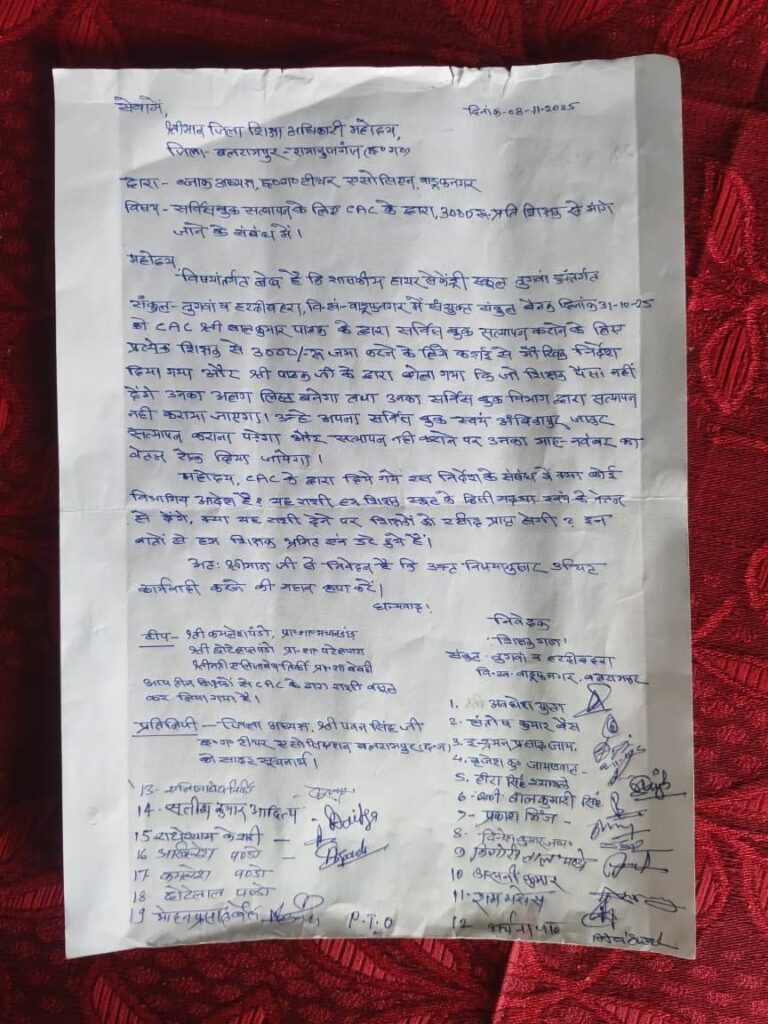 सेवामें,
दिनांक-08-11-2025
श्रीमान जिला शिक्षा अधिकारी महोदय,
जिला- बलरामपुर-रामानुजगंज(छ०ग०)
द्वारा - ब्लाक अध्यक्ष, छ०ग० टीचर एसोसिएशन, वाड्रफनगर
विषय - सर्विस बुक सत्यापन के लिए CAC के द्वारा, 3000 रू. प्रति शिक्षक से मांगे
जाने के संबंध में।
महोदय,
विषयांतर्गत लेख है कि शासकीय हायर सेकेंड्री स्कूल तुगवां अंतर्गत
संकुल- तुगवां व हरदीबहरा, वि.खं-वाड्रफनगर में संयुक्त संकुल बैठक दिनांक 31-10-25
को CAC श्री बालकुमार पाठक के द्वारा सर्विस बुक सत्यापन कराने के लिए
प्रत्येक शिक्षक से 3000/-रू जमा करने के लिये कड़ाई से मौखिक निर्देश
दिया गया और श्री पाठक जी के द्वारा बोला गया कि जो शिक्षक पैसा नहीं
देंगे उनका अलग लिस्ट बनेगा तथा उनका सर्विस बुक विभाग द्वारा सत्यापन
नही कराया जाएगा। उन्हे अपना सर्विस बुक स्वयं अंबिकापुर जाकर
सत्यापन कराना पड़ेगा और सत्यापन नही कराने पर उनका माह- नवंबर का
वेतन रोक दिया जायेगा।
महोदय, CAC के द्वारा दिये गये इस निर्देश के संबंध में क्या कोई
विभागिय आदेश है? यह राशी हम शिक्षक स्कूल के किसी मद या स्वयं के वेतन
से देंगे, क्या यह राशी देने पर शिक्षकों को रसीद प्राप्त होगी? इन
बातों से हम शिक्षक भ्रमित एवं डरे हुये हैं।
अतः श्रीमान जी से निवेदन है कि उक्त विषयानुसार उचित
कार्यवाही करने की महान कृपा करें।
धन्यवाद!
टीप - श्री कमलेश पंडो, प्रा०शा०
श्री छोटेलाल पंडो प्रा०शा० पटेलपारा
प्रा०शा० बेबदी
आप तीन शिक्षकों से CAC के द्वारा राशी वसूल
कर लिया गया है।
प्रतिलिपी - जिला अध्यक्ष, श्री पवन सिंह जी
छ०ग० टीचर एसोसिएशन बलरामपुर(छ०ग०)
को सादर सूचनार्थ।
निवेदक
शिक्षक गण
संकुल- तुगवां व हरदीबहरा
वि.ख. वाड्रफनगर, बलरामपुर
1. अवधेश गुप्ता
2. संतोष कुमार बैस
3. इन्द्रमन प्रसाद जाय.
4. बृजेश कु० जायसवाल
5. हीरा सिंह
6. नीलकुमारी सिंह
7- प्रकाश मिंज
8- दिनेश कुमार
9 किशोरी लाल
10 अश्वनी कुमार
11. राम
12 अर्चना
13-
14- सतीश कुमार आदित्य - Aditya
15 राधेश्याम केशरी -
16 अखिलेश पाण्डो
17 कमलेश पण्डो
18 छोटेलाल पण्डो
19 मोहन प्रसाद
P.T.O